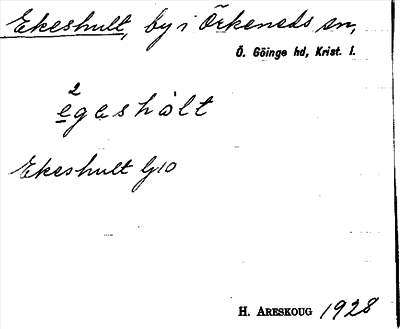 Ekeshult, by i Örkeneds sn,
Ö. Göinge hd, Krist. l.
2
egeshålt
Ekeshult GJ10
H. ARESKOUG 1928